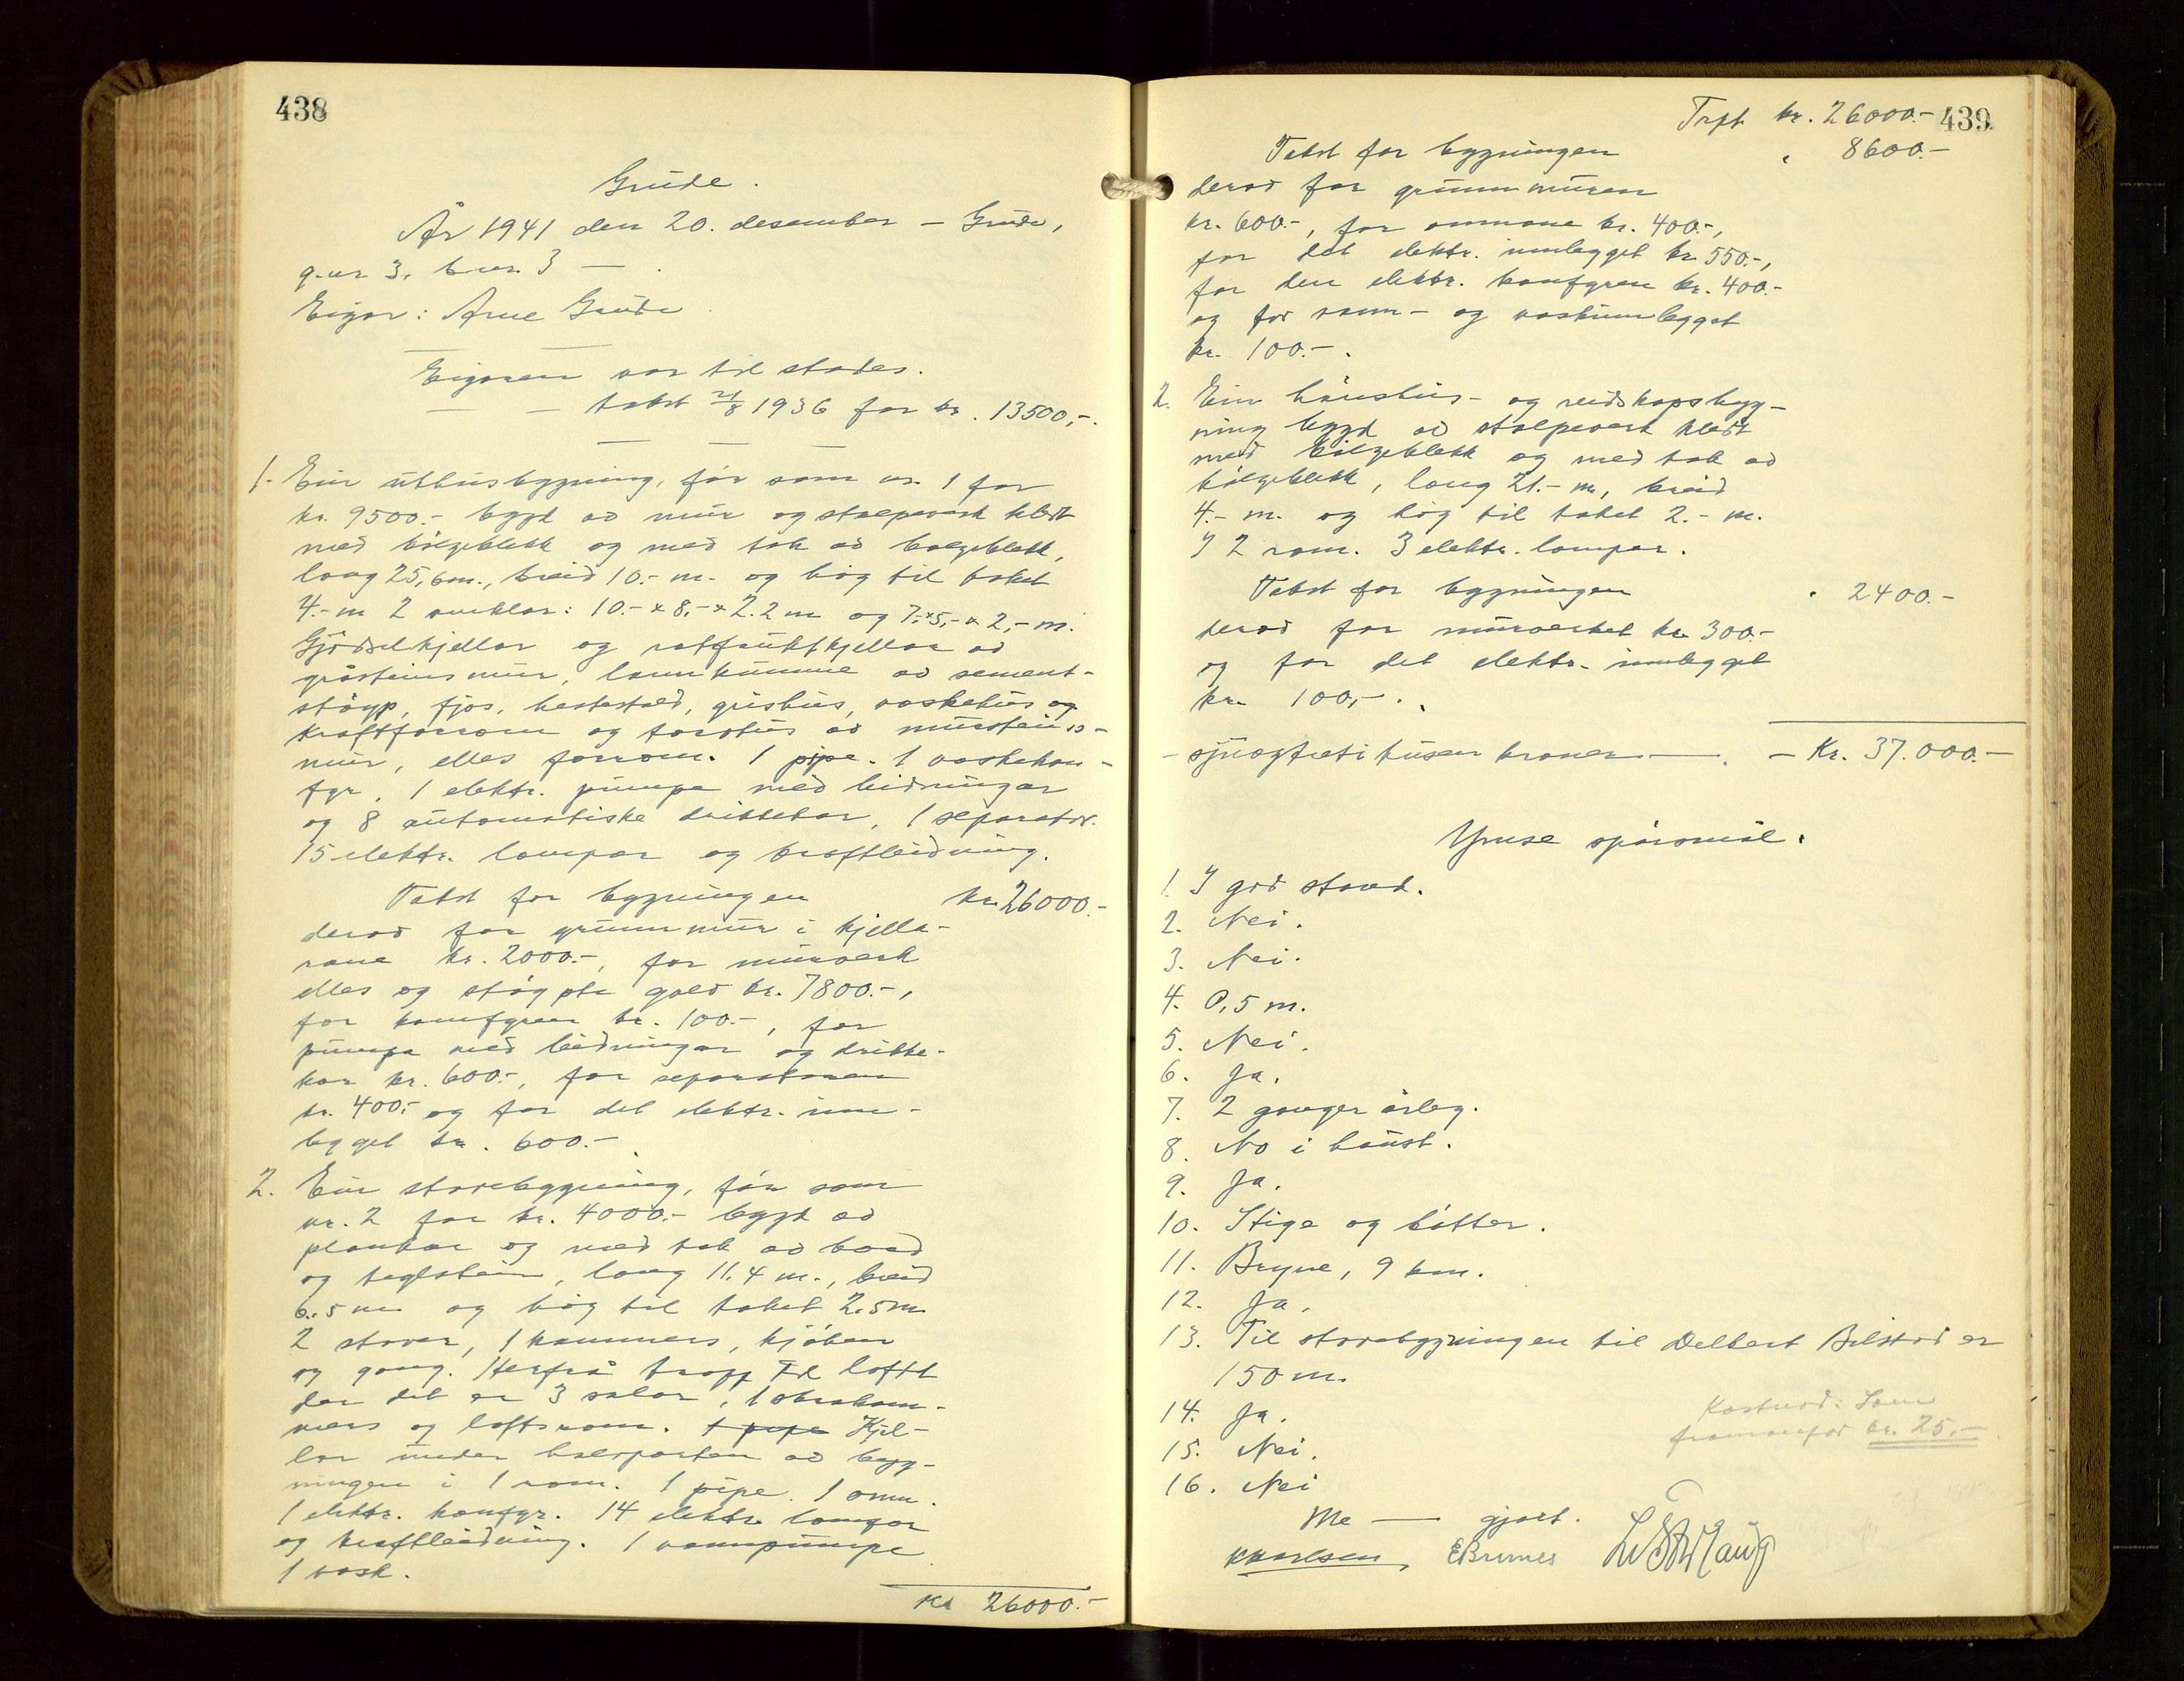 438
Grude.
År 1941 den 20. desember – Grude,
g.nr 3. b.nr. 3 — .
Eigar: Arne Grude
Eigaren var til stades.
— — takst 21/8 1936 for kr. 13500,-.
1. Ein uthusbygning, før som nr. 1 for
kr. 9500.- bygd av mur og stolpeverk kledt
med bølgeblekk og med tak av bølgeblekk,
lang 25,6 m., breid 10.- m. og høg til taket
4.- m 2 vinklar: 10.- x 8,- x 2.2 m og 7,- x 5,- x 2,- m.
Gjødselkjellar og rotfruktkjellar av
gråsteinsmur, landkumme av sement-
støyp, fjøs, hestestall, grishus, vaskehus og
kraftforrom og torvhus av murstein s-
mur, elles forrom. 1 pipe. 1 vaskekom-
fyr. 1 elektr. pumpe med leidningar
og 8 automatiske drikkekar, 1 separator.
15 elektr. lampar og kraftleidning.
Takst for bygningen kr. 26000.-
derav for grunnmur i kjella-
rane kr. 2000.-, for murverk
elles og støypte golv kr. 7800.-,
for komfyren kr. 100.-, for
pumpa med leidningar og drikke-
kar kr. 600.-, for separatoren
kr. 400,- og for det elektr. inn-
legget kr. 600.- .
2. Ein stovebygning, før som
nr. 2 for kr. 4000.- bygd av
plankar og med tak av bord
og teglstein, lang 11.4 m., breid
6.5 m og høg til taket 2.5 m
2 stover, 1 kammers, kjøken
og gang. Herfrå trapp til loftt
der det er 3 salar, 1 kvskam-
mers og loftsrom. 1 pipe Kjel-
lar under halvparten av byg-
ningen i 1 rom. 1 pipe. 1 omn.
1 elektr. komfyr. 14 elektr. lampar
og kraftleidning. 1 vannpumpe
1 vask.
Kr 26000.-
Trpt kr. 26000.- 439
Takst for bygningen " 8600.-
derav for grunnmuren
kr. 600.-, for omnane kr. 400.-,
for det elektr. innlegget kr. 550.-,
for den elektr. komfyren kr. 400.-
og for vann- og vaskinnlegget
kr. 100.- .
2. Ein hønshus- og reidskapsbyg-
ning bygd av stolpeverk kledt
med bølgeblekk og med tak av
bølgeblekk, lang 21.- m, breid
4.- m. og høg til taket 2.- m.
I 2 rom. 3 elektr. lampar.
Takst for bygningen " 2400.-
derav for murverket kr. 300.-
og for det elektr. innlegget
kr. 100,- .
- sjuogtretitusen kroner — . – Kr. 37.000.-
Ymse spørsmål.
1. I god stand.
2. Nei.
3. Nei.
4. 0,5 m.
5. Nei.
6. Ja.
7. 2 ganger årleg.
8. No i haust.
9. Ja.
10. Stige og bøtter.
11. Bryne, 9 km.
12. Ja.
13. Til stovebygningen til Delbert Bilstad er
150 m.
14. Ja.
15. Nei.
16. Nei
Kostnad: Som
framanfor kr. 25,-
Me — gjort.
KKarlsen, EBrunes